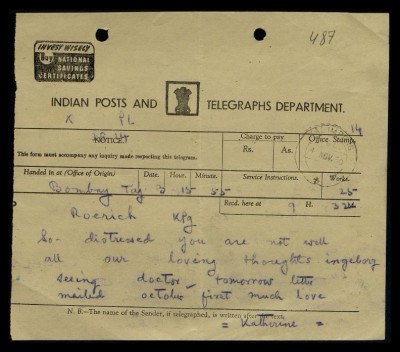 487
INVEST WISELY
Buy NATIONAL
SAVINGS
CERTIFICATES
INDIAN POSTS AND TELEGRAPHS DEPARTMENT.
X PL
NOTICE
Charge to pay
Office Stamp
This form must accompany any inquiry made respecting this telegram.
Rs. As.
Handed in at (Office of Origin) Date. Hour. Minute. Service Instructions. Words.
Bombay Taj 3 15 55 25
Recd. here at 9 H.
Roerich Kpg
So distressed you are not well
all our loving thoughts ingeborg
seeing doctor tomorrow letter
mailed october first much love
N. B.—The name of the Sender, if telegraphed, is written after the text,
= Katherine =